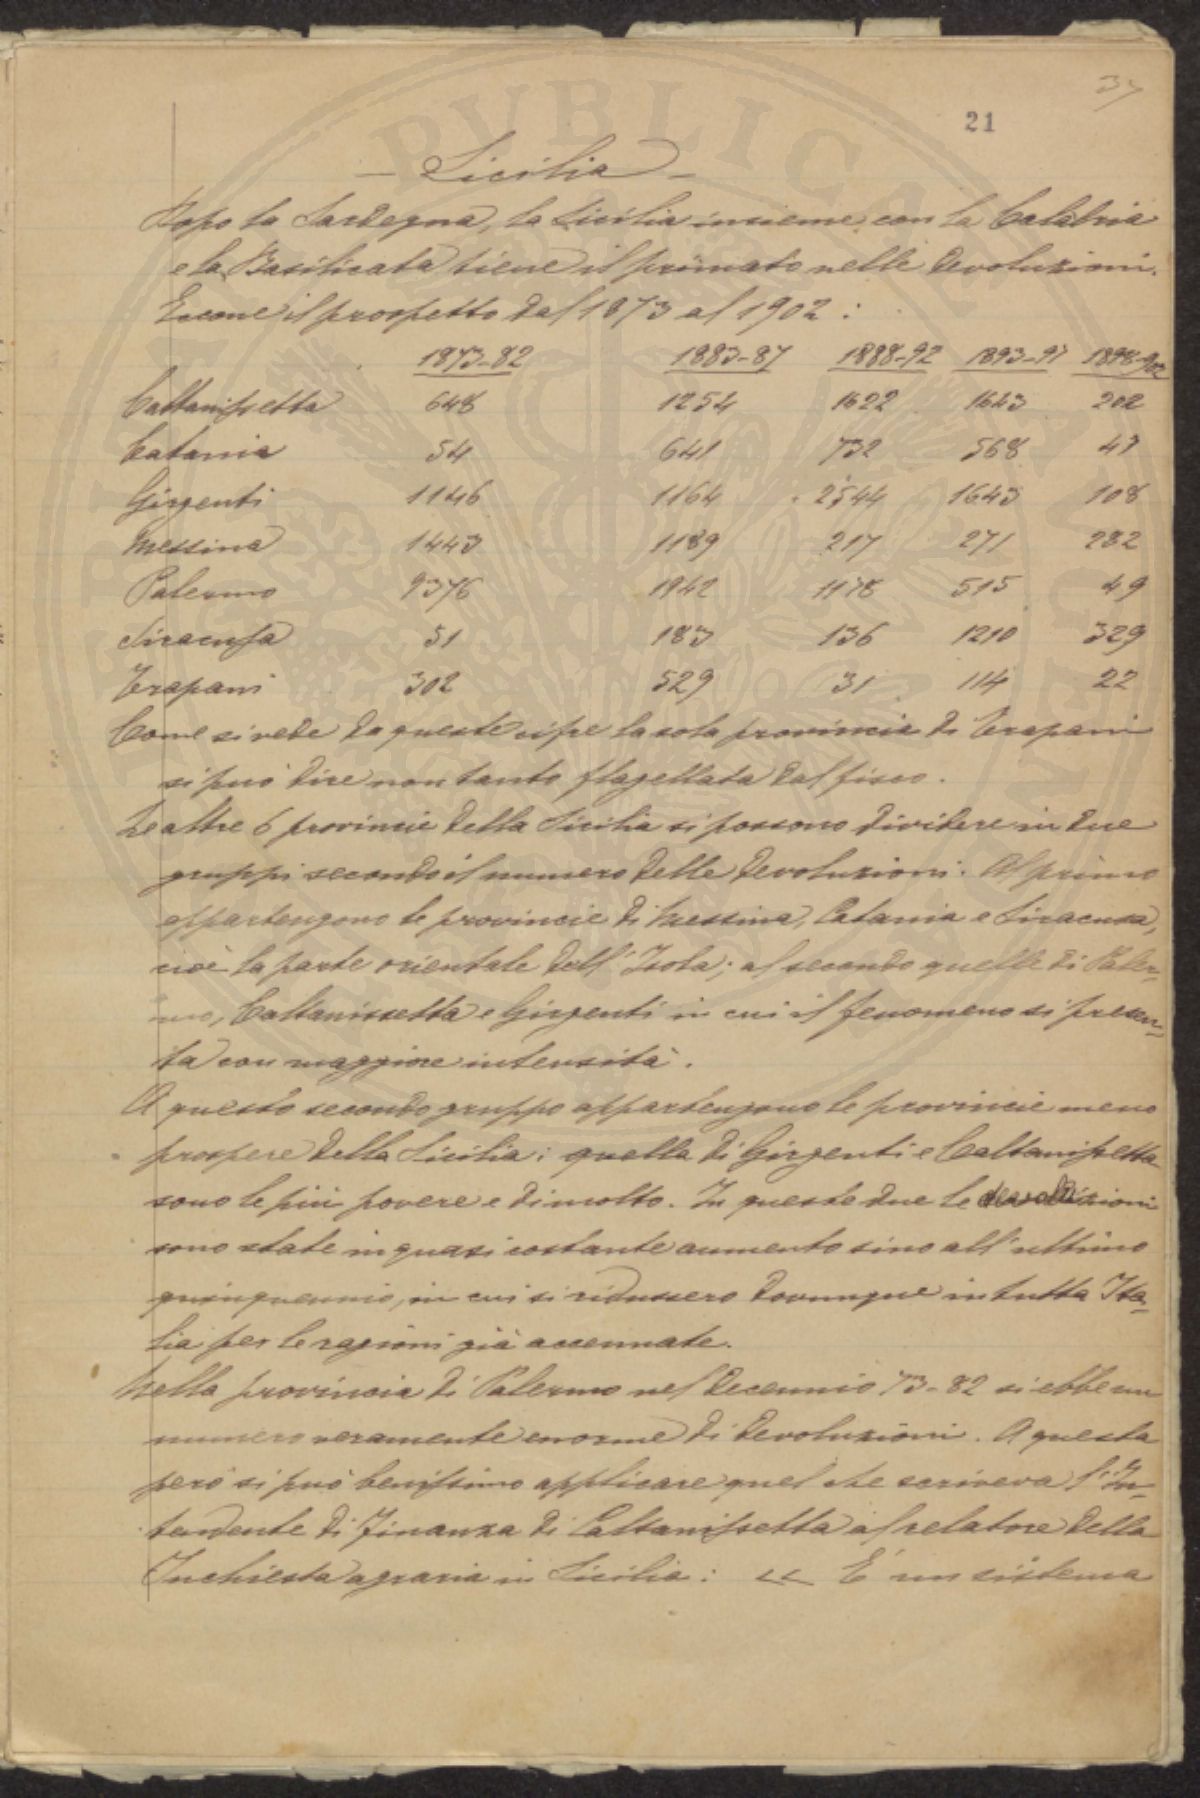 37
21
– Sicilia –
Dopo la Sardegna, la Sicilia insieme con la Calabria
e la Basilicata tiene il primato nelle devoluzioni.
Eccone il prospetto dal 1873 al 1902:
1873-82 1883-87 1888-92 1893-97 1898-902
Caltanissetta 648 1254 1622 1643 202
Catania 54 641 732 568 47
Girgenti 1146 1164 2544 1643 108
Messina 1443 1189 217 271 282
Palermo 9376 1942 1178 515 49
Siracusa 51 183 136 1210 329
Trapani 302 529 31 114 22
Come si vede da queste cifre la sola provincia di Trapani
si può dire non tanto flagellata dal fisco.
Le altre 6 provincie della Sicilia si possono dividere in due
gruppi secondo il numero delle devoluzioni. Al primo
appartengono le provincie di Messina, Catania e Siracusa,
cioè la parte orientale dell'Isola; al secondo quelle di Paler-
mo, Caltanissetta e Girgenti in cui il fenomeno si presen-
ta con maggiore intensità.
A questo secondo gruppo appartengono le provincie meno
prospere della Sicilia: quella di Girgenti e Caltanissetta
sono le più povere e di molto. In queste due le devoluzioni
sono state in quasi costante aumento sino all'ultimo
quinquennio, in cui si ridussero dovunque in tutta Ita-
lia per le ragioni già accennate.
Nella provincia di Palermo nel decennio 73-82 si ebbe un
numero veramente enorme di devoluzioni. A questa
però si può benissimo applicare quel che scriveva l'In-
tendente di Finanza di Caltanissetta al relatore della
Inchiesta agraria in Sicilia: « E' un sistema